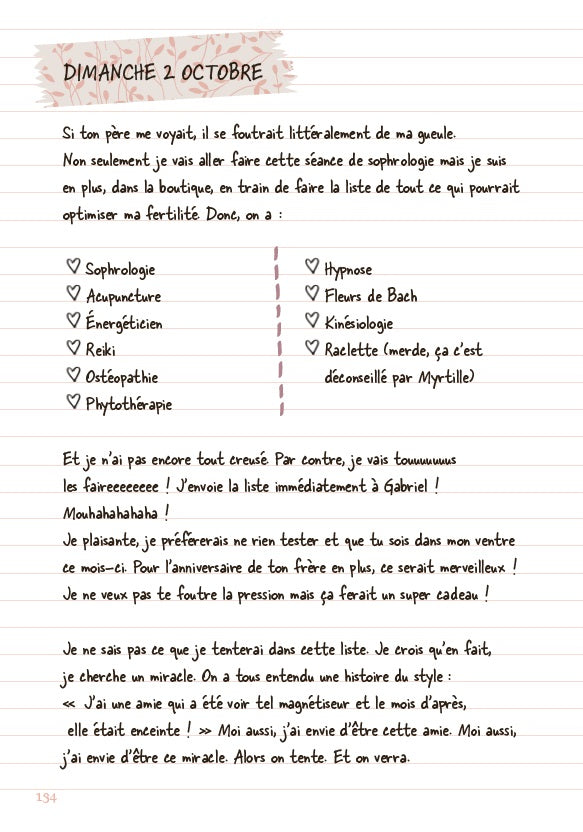 DIMANCHE 2 OCTOBRE
Si ton père me voyait, il se foutrait littéralement de ma gueule.
Non seulement je vais aller faire cette séance de sophrologie mais je suis
en plus, dans la boutique, en train de faire la liste de tout ce qui pourrait
optimiser ma fertilité. Donc, on a :
Sophrologie
Acupuncture
Énergéticien
Reiki
Ostéopathie
Phytothérapie
Hypnose
Fleurs de Bach
Kinésiologie
Raclette (merde, ça c'est
déconseillé par Myrtille)
Et je n'ai pas encore tout creusé. Par contre, je vais touuuuuuus
les faireeeeeeee ! J'envoie la liste immédiatement à Gabriel !
Mouhahahahaha !
Je plaisante, je préférerais ne rien tester et que tu sois dans mon ventre
ce mois-ci. Pour l'anniversaire de ton frère en plus, ce serait merveilleux !
Je ne veux pas te foutre la pression mais ça ferait un super cadeau !
Je ne sais pas ce que je tenterai dans cette liste. Je crois qu'en fait,
je cherche un miracle. On a tous entendu une histoire du style :
« J'ai une amie qui a été voir tel magnétiseur et le mois d'après,
elle était enceinte ! » Moi aussi, j'ai envie d'être cette amie. Moi aussi,
j'ai envie d'être ce miracle. Alors on tente. Et on verra.
134